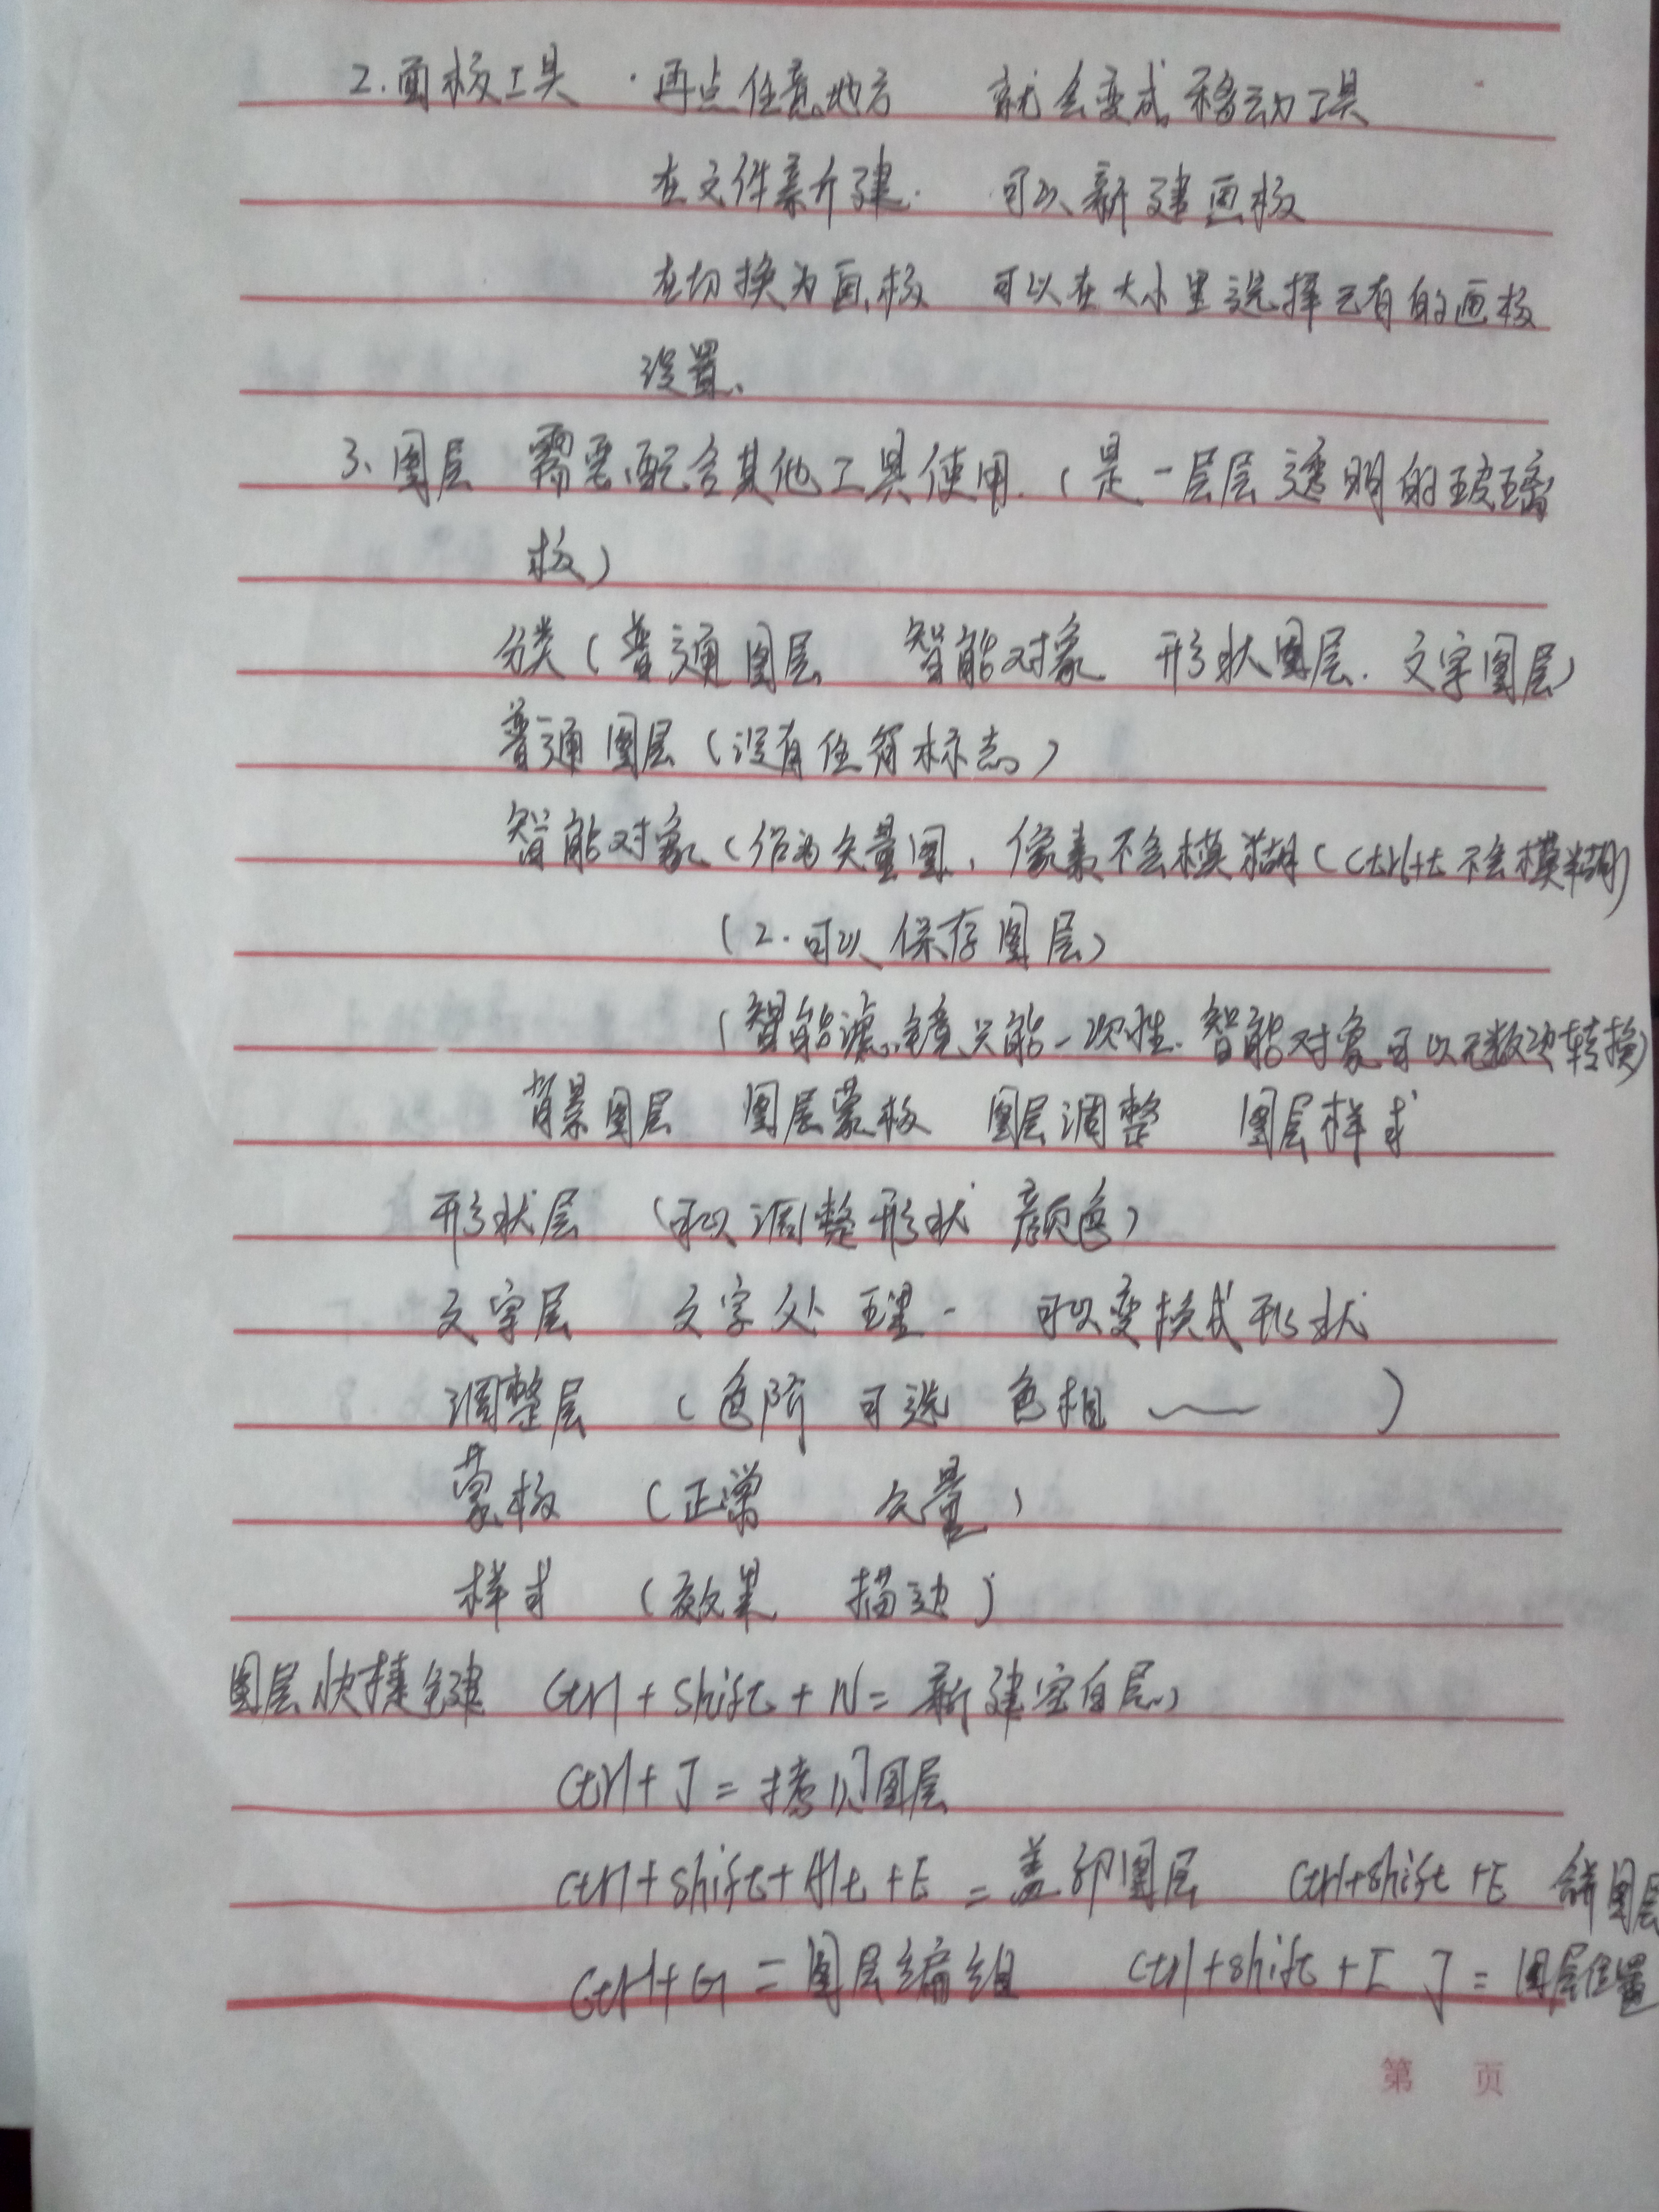 2.面板工具 · 再点任意地方 就会变成移动工具
在文件素介建. 可以新建画板
在切换为画板 可以在大小里选择已有的画板
设置、
3、图层 需要配合其他工具使用.(是一层层透明的玻璃
板)
分类(普通图层 智能对象 形状图层. 文字图层)
普通图层(没有任何标志)
智能对象(作为矢量图,像素不会模糊(Ctrl+t 不会模糊)
(2.可以保存图层)
(智能滤镜只能一次性.智能对象可以无数次转换)
背景图层 图层蒙板 图层调整 图层样式
形状层 (可以调整形状 颜色)
文字层 文字处理 - 可以变换成形状
调整层 (色阶 可选 色相 ~ )
蒙板 (正常 矢量)
样式 (效果 描边)
图层快捷键 Ctrl + Shift + N = 新建空白层
Ctrl + J = 拷贝图层
Ctrl+Shift+Alt+E = 盖印图层 Ctrl+Shift+E 合并图层
Ctrl+G = 图层编组 Ctrl+Shift+[ ] = 图层位置
第 页